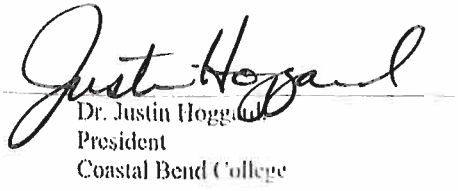 Justin Hoggard
Dr. Justin Hoggard
President
Coastal Bend College